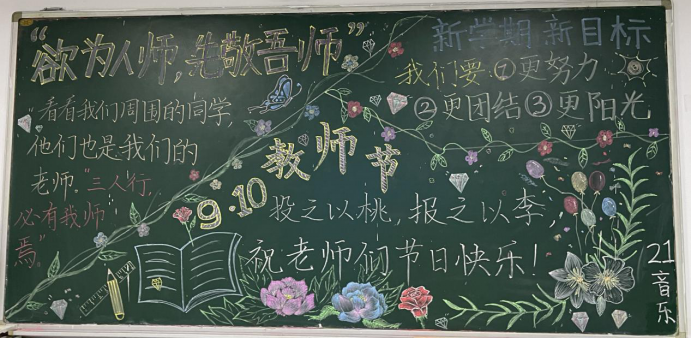 “欲为人师,先敬吾师”
“看看我们周围的同学,
他们也是我们的
老师。”三人行,
必有我师
焉。
新学期 新目标
我们要:①更努力
②更团结③更阳光
教师节
9.10
投之以桃,报之以李,
祝老师们节日快乐!
21
音
乐